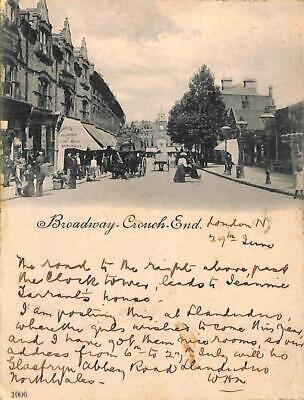 Broadway-Crouch-End.
London N
29th June
The road to the right above, past
the Clock tower, leads to Jeannie
Tarrant's house.
I am posting this, at Llandudno,
where the girls wished to come this year
and I have got them nice rooms, so our
address from 6th to 27 July will be
Glasfryn Abbey Road Llandudno
North Wales.
1006